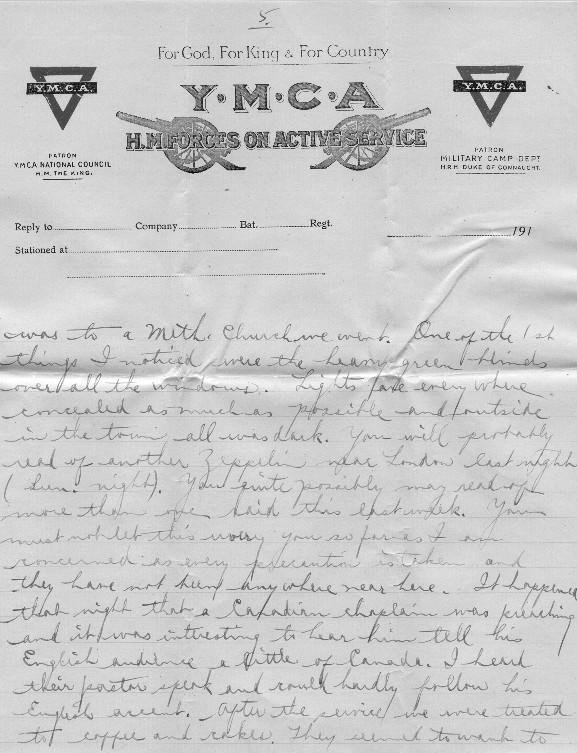 5.
For God, For King & For Country
Y.M.C.A.
Y.M.C.A.
Y·M·C·A
H.M. FORCES ON ACTIVE SERVICE
PATRON
Y.M.C.A NATIONAL COUNCIL
H.M. THE KING.
PATRON
MILITARY CAMP DEPT
H.R.H. DUKE OF CONNAUGHT.
Reply to Company Bat. Regt.
191
Stationed at
was to a Meth. Church we went. One of the 1st
things I noticed were the heavy green blinds
over all the windows. Lights are everywhere
concealed as much as possible and outside
in the town all was dark. You will probably
read of another Zeppelin near London last night
(Sun. night). You quite possibly may read of
more than one raid this last week. You
must not let this worry you so far as I am
concerned as every precaution is taken and
they have not been anywhere near here. It happened
that night that a Canadian chaplain was preaching
and it was interesting to hear him tell his
English audience a little of Canada. I heard
their pastor speak and could hardly follow his
English accent. After the service we were treated
to coffee and cakes. They seemed to want to